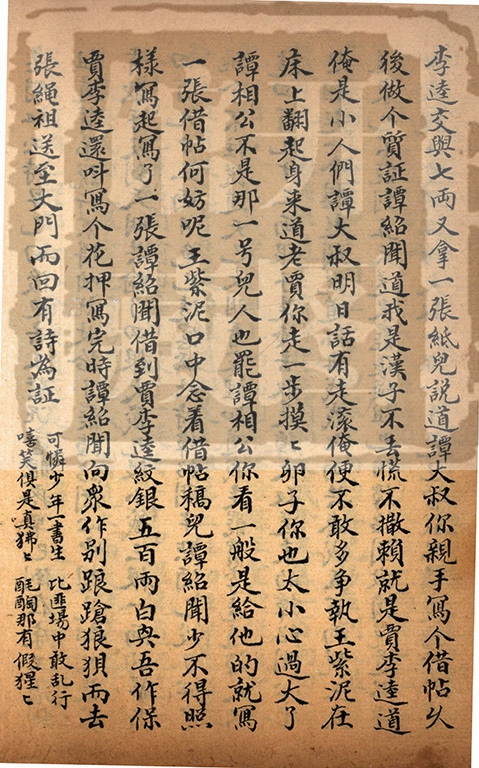 李逵交與七両又拿一張紙兒説道譚大叔你親手寫个借帖久
後做个質証譚紹聞道我是漢子不丢慌不撒賴就是賈李逵道
俺是小人們譚大叔明日話有走滚俺便不敢多争執王紫泥在
床上翻起身来道老賈你走一步摸〻卵子你也太小心過大了
譚相公不是那一号兒人也罷譚相公你看一般是給他的就寫
一張借帖何妨呢王紫泥口中念着借帖稿兒譚紹聞少不得照
樣寫起寫了一張譚紹聞借到賈李逵紋銀五百両白與吾作保
賈李逵還呌寫个花押寫完時譚紹聞向衆作别踉蹌狼狽而去
張繩祖送至大門而回有詩為証
可憐少年一書生 比匪塲中敢乱行
嘻笑俱是真狒〻 酕醄那有假猩〻